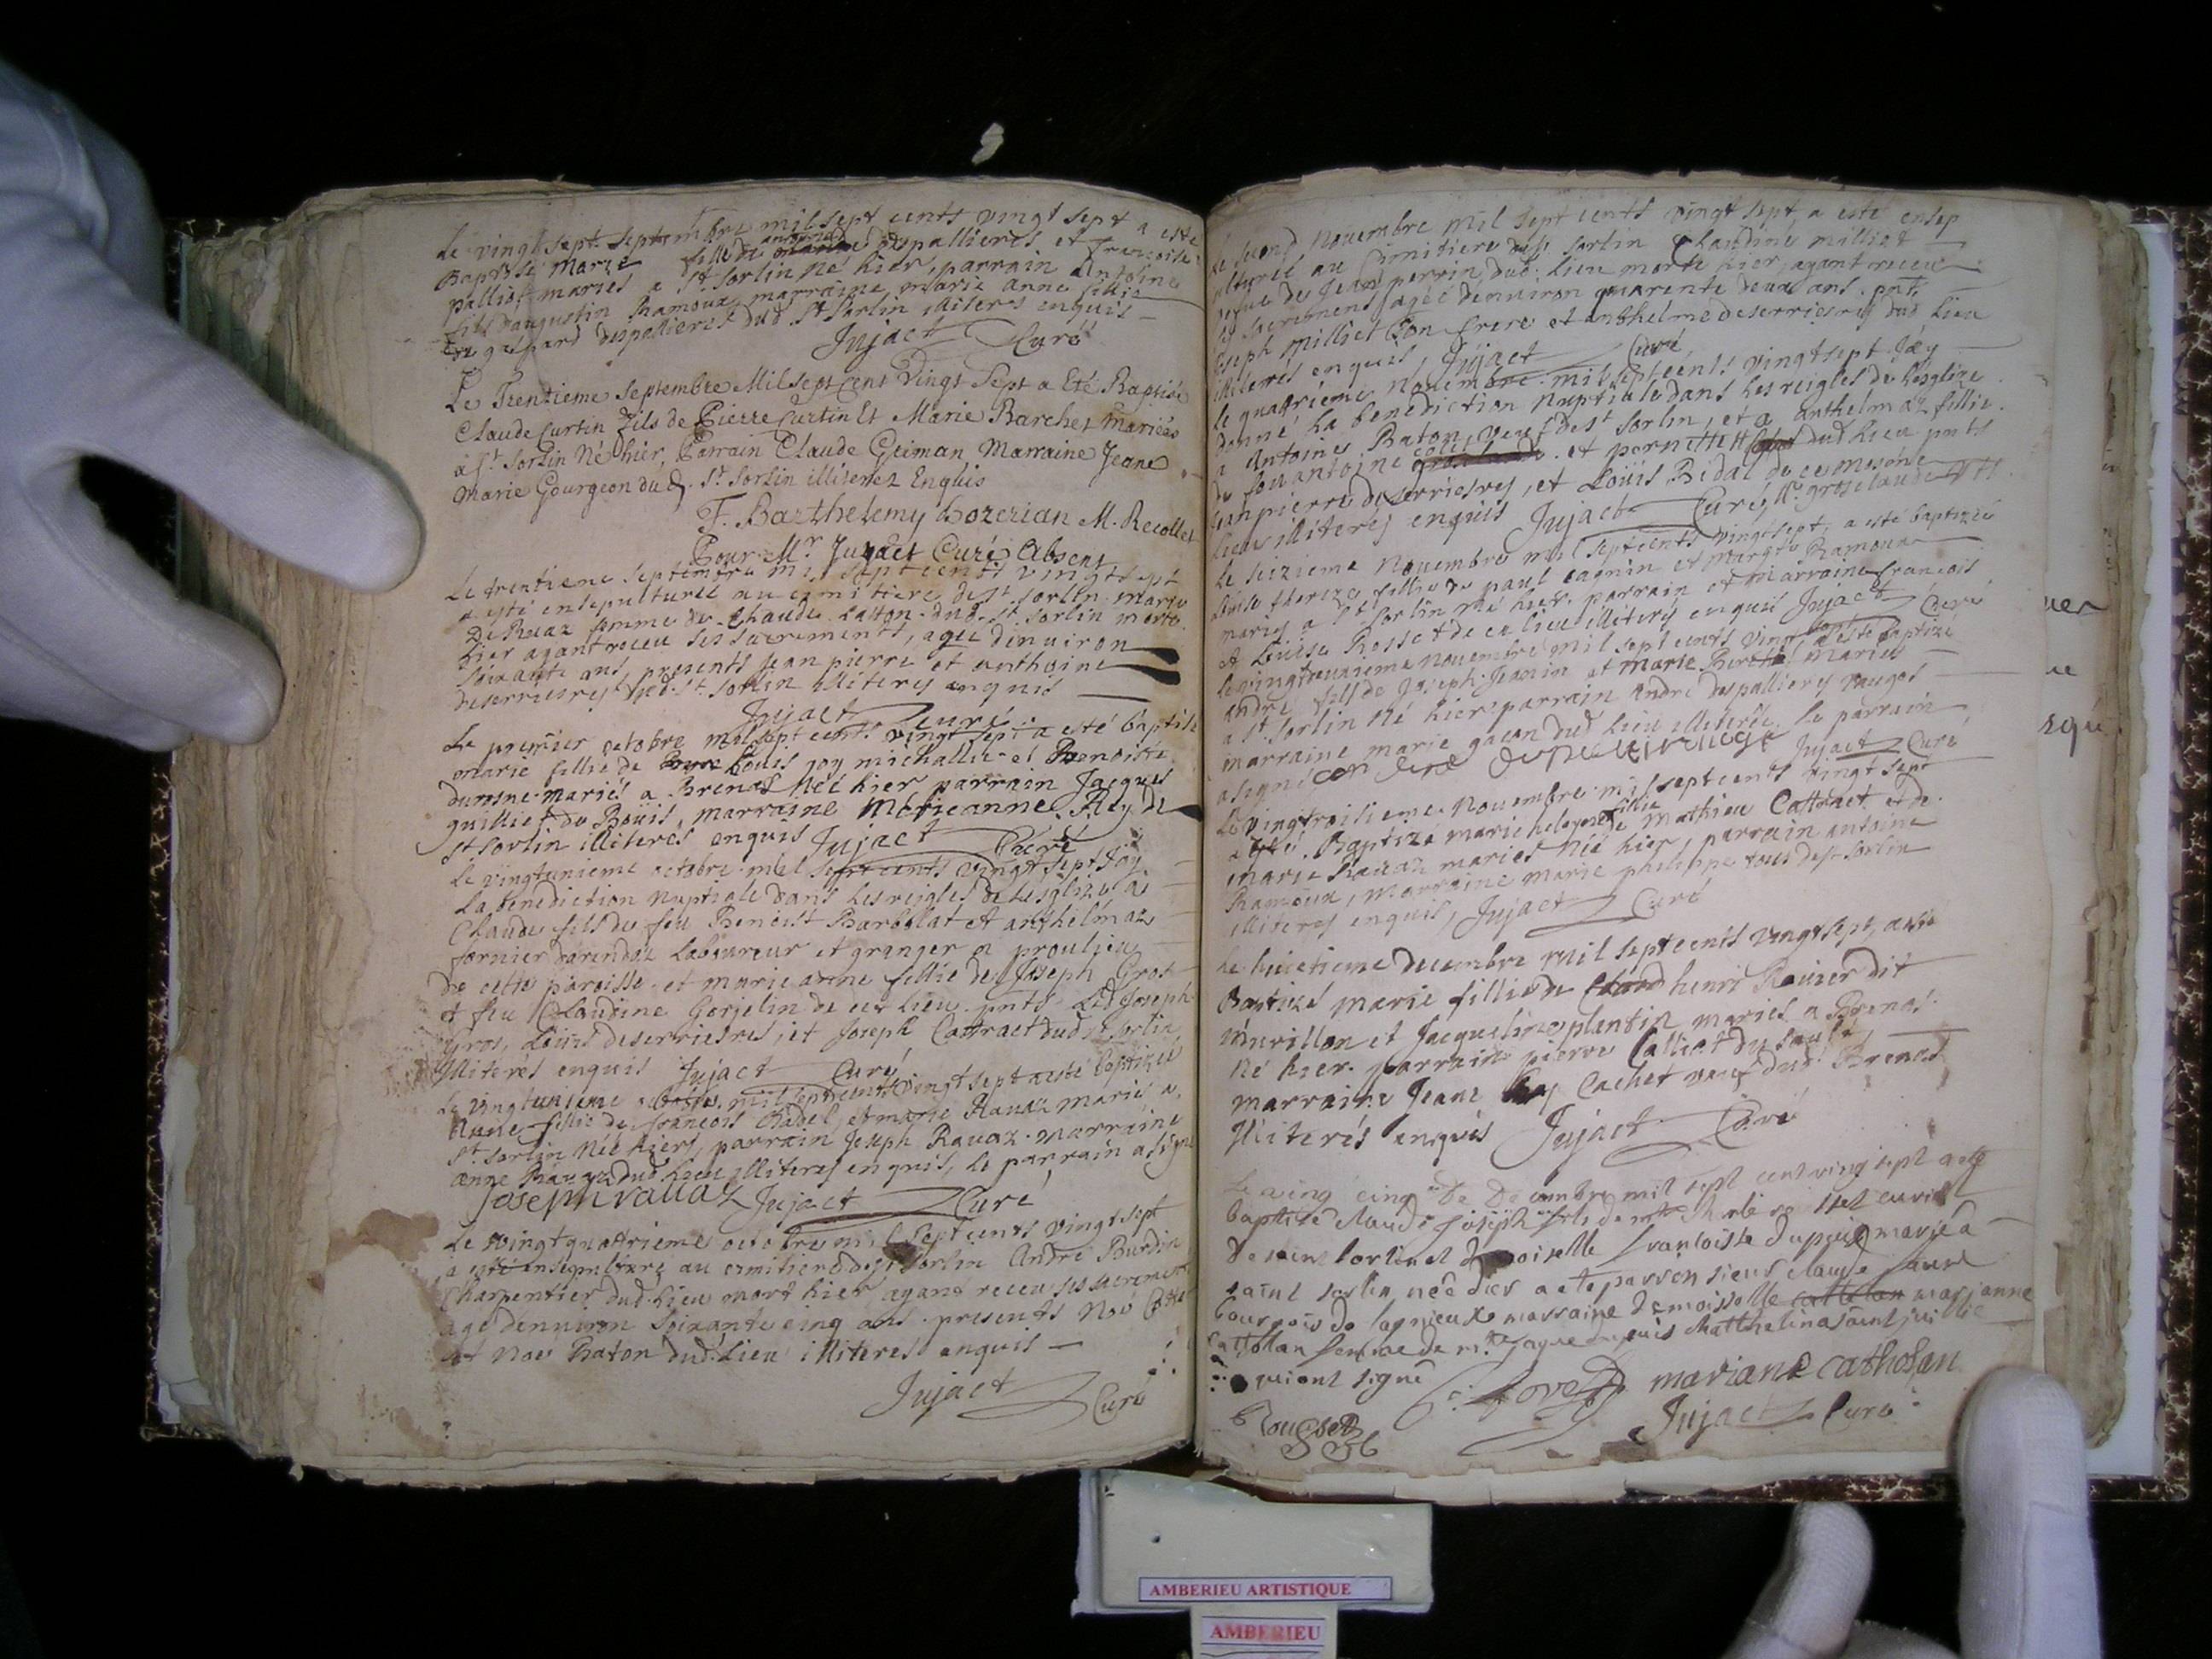 Le vingt sept septembre mil sept cents vingt sept a este
Baptisé marie fille de despallieres et francoise
palliod mariés a St Sorlin né hier, parrain Antoine
fils daugustin Ramoux marraine marie anne fillie
de gaspard despallieres dud St Sorlin illiterés enquis
Jujact Curé
Le Trentieme Septembre Mil sept Cent Vingt Sept a Eté Baptisé
Claude Curtin Fils de Pierre Curtin Et Marie Barchet Mariés
à St Sorlin Né hier, Parrain Claude Geiman Marraine Jeane
Marie Gourgeon dud. St Sorlin illiterez Enquis
F. Barthelemy M. Recollet
Pour Mr Jujact Curé Absent
Le trentiene septembre mil sept cents vingt sept
a esté ensepulturée au cimitiere de St Sorlin marie
De Ravaz femme de Claude Latton dud. St Sorlin morte
hier ayant receu ses sacrements, agée denuiron
soixante ans presents Jean pierre et anthoine
deserriesres dud. St Sorlin illiteres enquis
Jujact curé
Le premier octobre mil sept cents vingt sept a esté baptisé
marie fillie de Louis joy michallie et Benoiste
dumsne mariés a Brenas Née hier parrain Jacques
guilliet du Boüis, marraine Marieanne Rey de
St Sorlin illiteres enquis Jujact Curé
Le vingtunieme octobre mil sept cents vingt sept Jay
La benediction Nuptiale dans les reigles de lesglize a
Claude fils de feu Benoist Barbollat et anthelmaz
fornier darendaz Laboureur et granger a proulieu
de cette paroisse et marie anne fillie de Joseph Gros
et feu Claudine Gorjelin de ce lieu pnts Led Joseph
Gros, Loüis deserriesres, et Joseph Cattract dud St Sorlin
Illiterés enquis Jujact Curé
Le vingtunieme octobre mil sept cents vingt sept a esté baptizée
Anne fillie de francois Chabel et marie Ravaz mariés a
St Sorlin Née hier, parrain Joseph Ravaz marraine
anne Ravaz dud Lieu illiteres enquis, le parrain a signé
Joseph ravaz Jujact Curé
Le vingt quattrieme octobre mil sept cents vingt sept
a esté ensepulturé au cimitiere de St Sorlin André Burdin
Charpentier dud. Lieu mort hier ayant receu ses sacremens
agé denuiron soixante cinq ans. presents Noé
et Noe Baton dud. Lieu illiteres enquis
Jujact Curé
Le second Novembre mil sept cents vingt sept a esté ensep
ulturée au Cimitiere de St Sorlin Claudine milliet
vefue de Jean perrin dud. lieu morte hier, ayant receu
les sacremens agée denuiron quarente deux ans. pnts
Joseph milliet son frere et anthelme deserriesres dud Lieu
illiterés enquis, Jujact Curé
Le quatriéme Novembre mil sept cents vingt sept Jay
donné La benediction Nuptiale dans Les reigles de Lesglize
a Antoine Baton, veuf de St Sorlin, et a anthelmaz fillie
de feu antoine et pernette dud Lieu pnts
Jean pierre deserriesres, et Loüis Bidal de ce mesme
lieu illiteres enquis Jujact Curé
Le seizieme Novembre mil sept cents vingt sept, a esté baptizée
Louise therese fillie de paul cagnin et margte Ramoux
mariés a St Sorlin né hier parrain et marraine francois
et Louise Rosset de ce lieu illiterés enquis Jujact Curé
Le vingtdeuxieme novembre mil sept cents vingt sept a este baptizé
andré fils de Joseph Jeanin et marie mariés
a St Sorlin né hier parrain André despallieres
marraine marie gacon dud lieu illiterée. Le parrain
a signé Jujact Curé
Le vingtroisieme Novembre mil sept cents vingt sept
a esté Baptizé marie fillie de mathieu Cattract et de
marie Ravaz mariés née hier, parrain antoine
Ramoux, marraine marie philippe tous de St Sorlin
illiteres enquis, Jujact Curé
Le huictieme decembre mil sept cents vingt sept, a esté
Baptizé marie fillie de henri Ravier dit
murillon et Jacqueline plantin mariés a Brenas
né hier. parrain pierre Calliat du Sault,
marraine Jeane Cachet dud Brenas
Illiterés enquis Jujact Curé
Le ving cinq De Decembre mil sept cent ving sept a ete
baptisé claude joseph fils de
De saint sorlin et demoiselle francoise Dupuis mariés a
saint sorlin née dier a ete parren sieur claude
bourgois de lagnieux marraine demoiselle marianne
cattolan femme de mtre
qui ont signé mariane cathosan
Jujact Curé
Rousset
AMBERIEU ARTISTIQUE
AMBERIEU